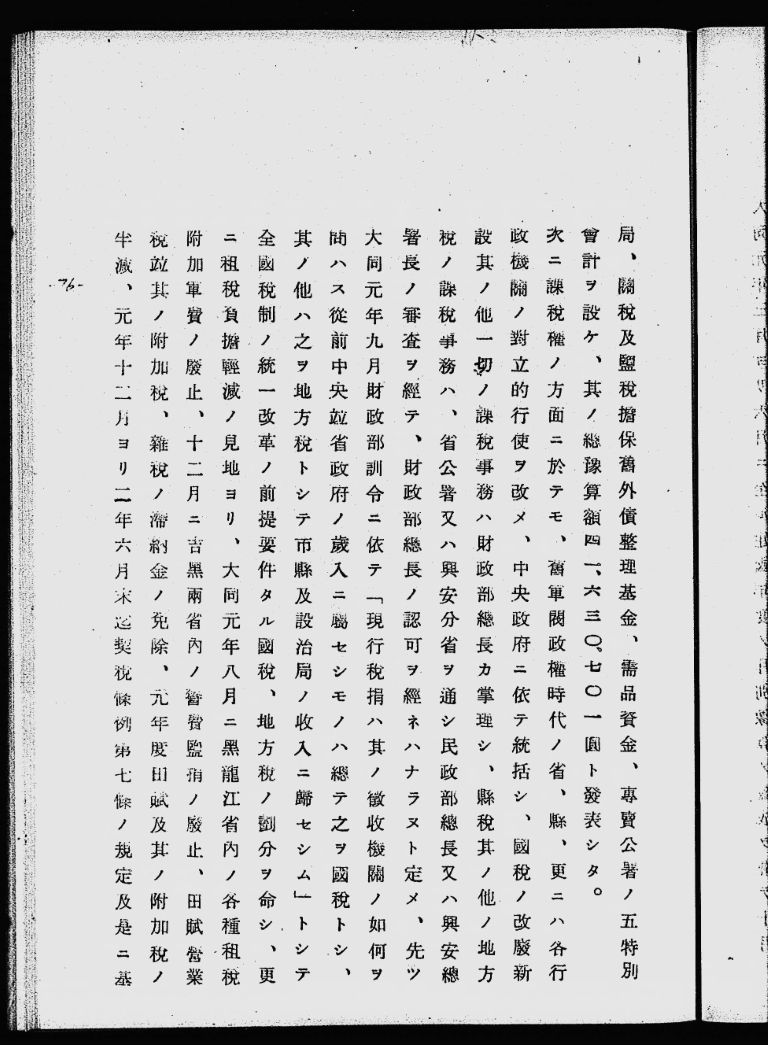 局、關稅及鹽稅擔保舊外債整理基金、需品資金、專賣公署ノ五特別
會計ヲ設ケ、其ノ總豫算額四一、六三〇、七〇一圓ト發表シタ。
次ニ課稅權ノ方面ニ於テモ、舊軍閥政權時代ノ省、縣、更ニハ各行
政機關ノ對立的行使ヲ改メ、中央政府ニ依テ統括シ、國稅ノ改廢新
設其ノ他一切ノ課稅事務ハ財政部總長カ掌理シ、縣稅其ノ他ノ地方
稅ノ課稅事務ハ、省公署又ハ興安分省ヲ通シ民政部總長又ハ興安總
署長ノ審査ヲ經テ、財政部總長ノ認可ヲ經ネハナラヌト定メ、先ツ
大同元年九月財政部訓令ニ依テ「現行稅捐ハ其ノ徵收機關ノ如何ヲ
問ハス從前中央竝省政府ノ歲入ニ屬セシモノハ總テ之ヲ國稅トシ、
其ノ他ハ之ヲ地方稅トシテ市縣及設治局ノ收入ニ歸セシム」トシテ
全國稅制ノ統一改革ノ前提要件タル國稅、地方稅ノ劃分ヲ命シ、更
ニ租稅負擔輕減ノ見地ヨリ、大同元年八月ニ黑龍江省內ノ各種租稅
附加軍費ノ廢止、十二月ニ吉黑兩省內ノ警費鹽捐ノ廢止、田賦營業
稅竝其ノ附加稅、雜稅ノ滯納金ノ免除、元年度田賦及其ノ附加稅ノ
半減、元年十二月ヨリ二年六月末迄契稅條例第七條ノ規定及是ニ基
-76-